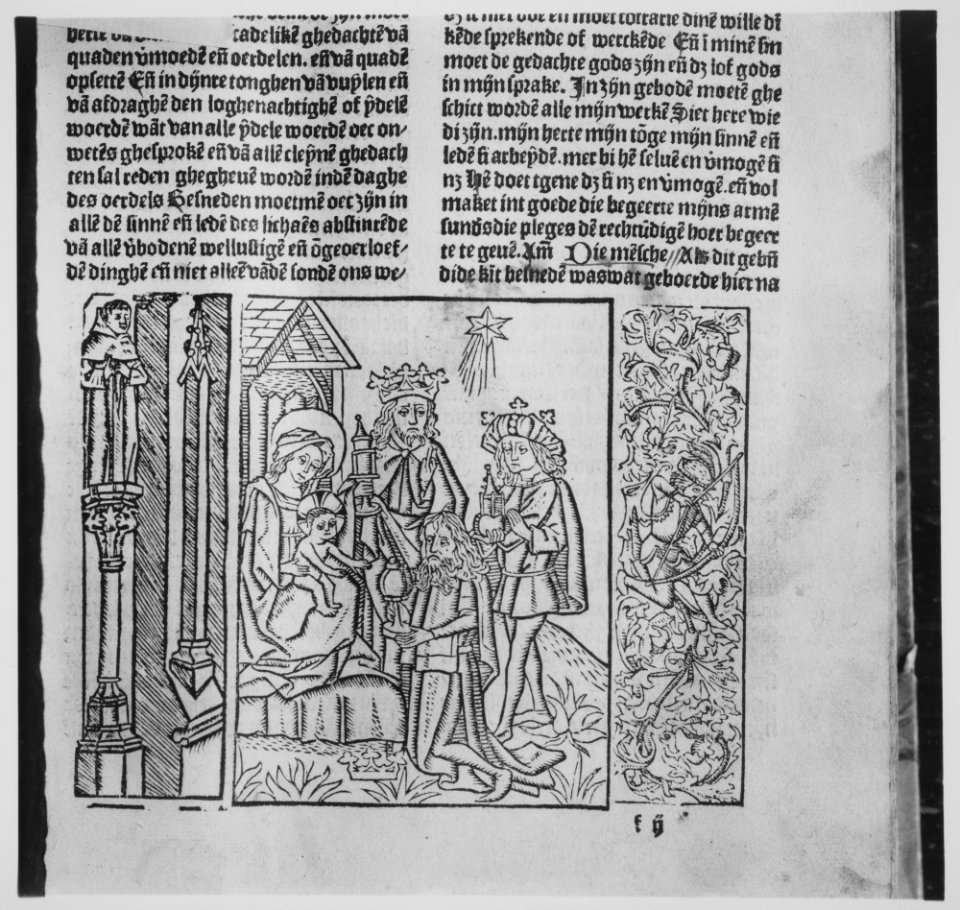 tadelikē ghedachtē vā
quaden v̄moedē en̄ oerdelen. en̄ vā quadē
opsettē En̄ in dijnre tonghen vā vuylen en̄
vā afdraghē den loghenachtighē of ydelē
woerdē wāt van alle ydele woerdē oec on/
wetēs ghesprokē en̄ vā allē cleynē ghedach
ten sal reden ghegheuē wordē indē daghe
des oerdels Besneden moetmē oec zijn in
allē dē sinnē en̄ ledē des lichaēs abstinēcie
vā allē v̄bodenē wellustigē en̄ ōgeoerloef/
dē dinghē en̄ niet alleē vādē sondē ons we/
kēde sprekende of werckēde En̄ ī minē sin
moet de gedachte gods zijn en̄ dz lof gods
in mijn sprake. In zijn gebodē moetē ghe
schict wordē alle mijn werkē Siet here wie
di zijn. mijn herte mijn tōge mijn sinnē en̄
ledē si arbeydē. met bi hē seluē en v̄mogē si
nz Hē doet tgene dz si nz en v̄mogē. en̄ vol
maket int goede die begeerte mijns armē
te te geuē. Am̄ Die mēsche // Als dit gebn̄
dide kīt besnedē was wat geboerde hier na
f ij